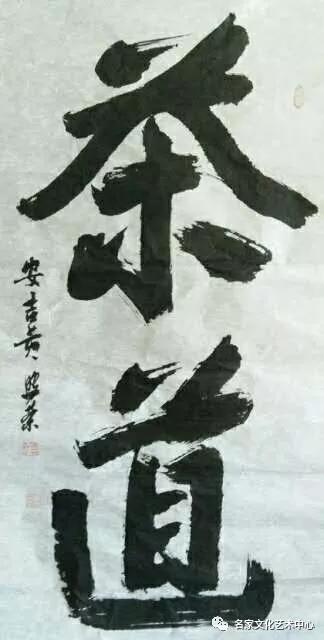 茶道
安吉黄
名家文化艺术中心